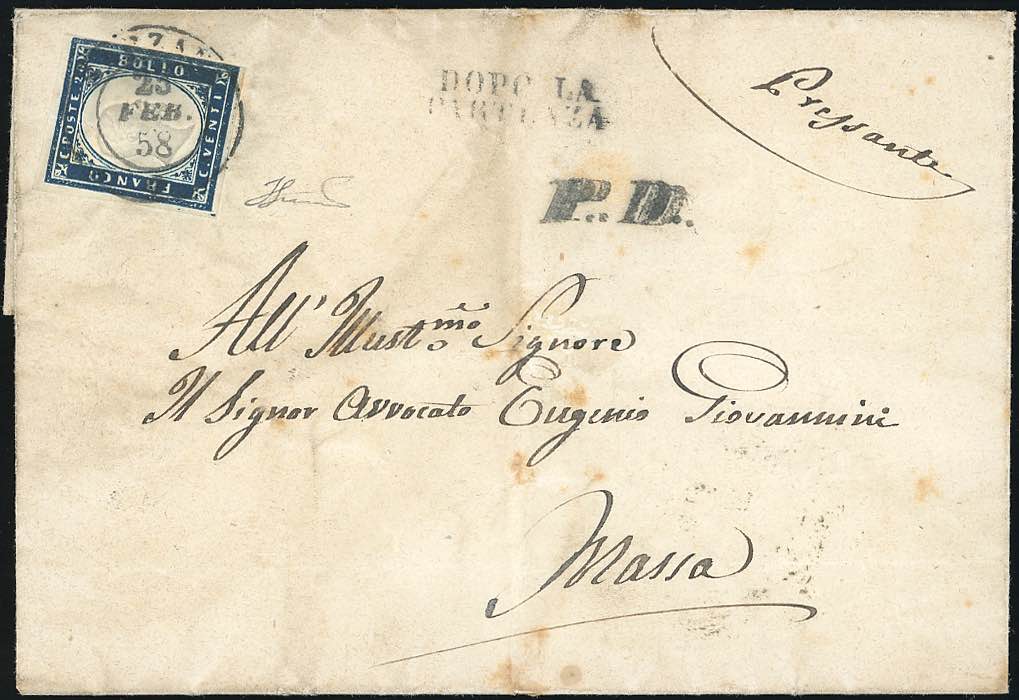 FRANCO
BOLLO
C. POSTE 20
C. VENTI
23
FEB.
58
DOPO LA
PARTENZA
P.D.
Pressante
All' Illustmo Signore
Il Signor Avvocato Eugenio Giovannini
Massa